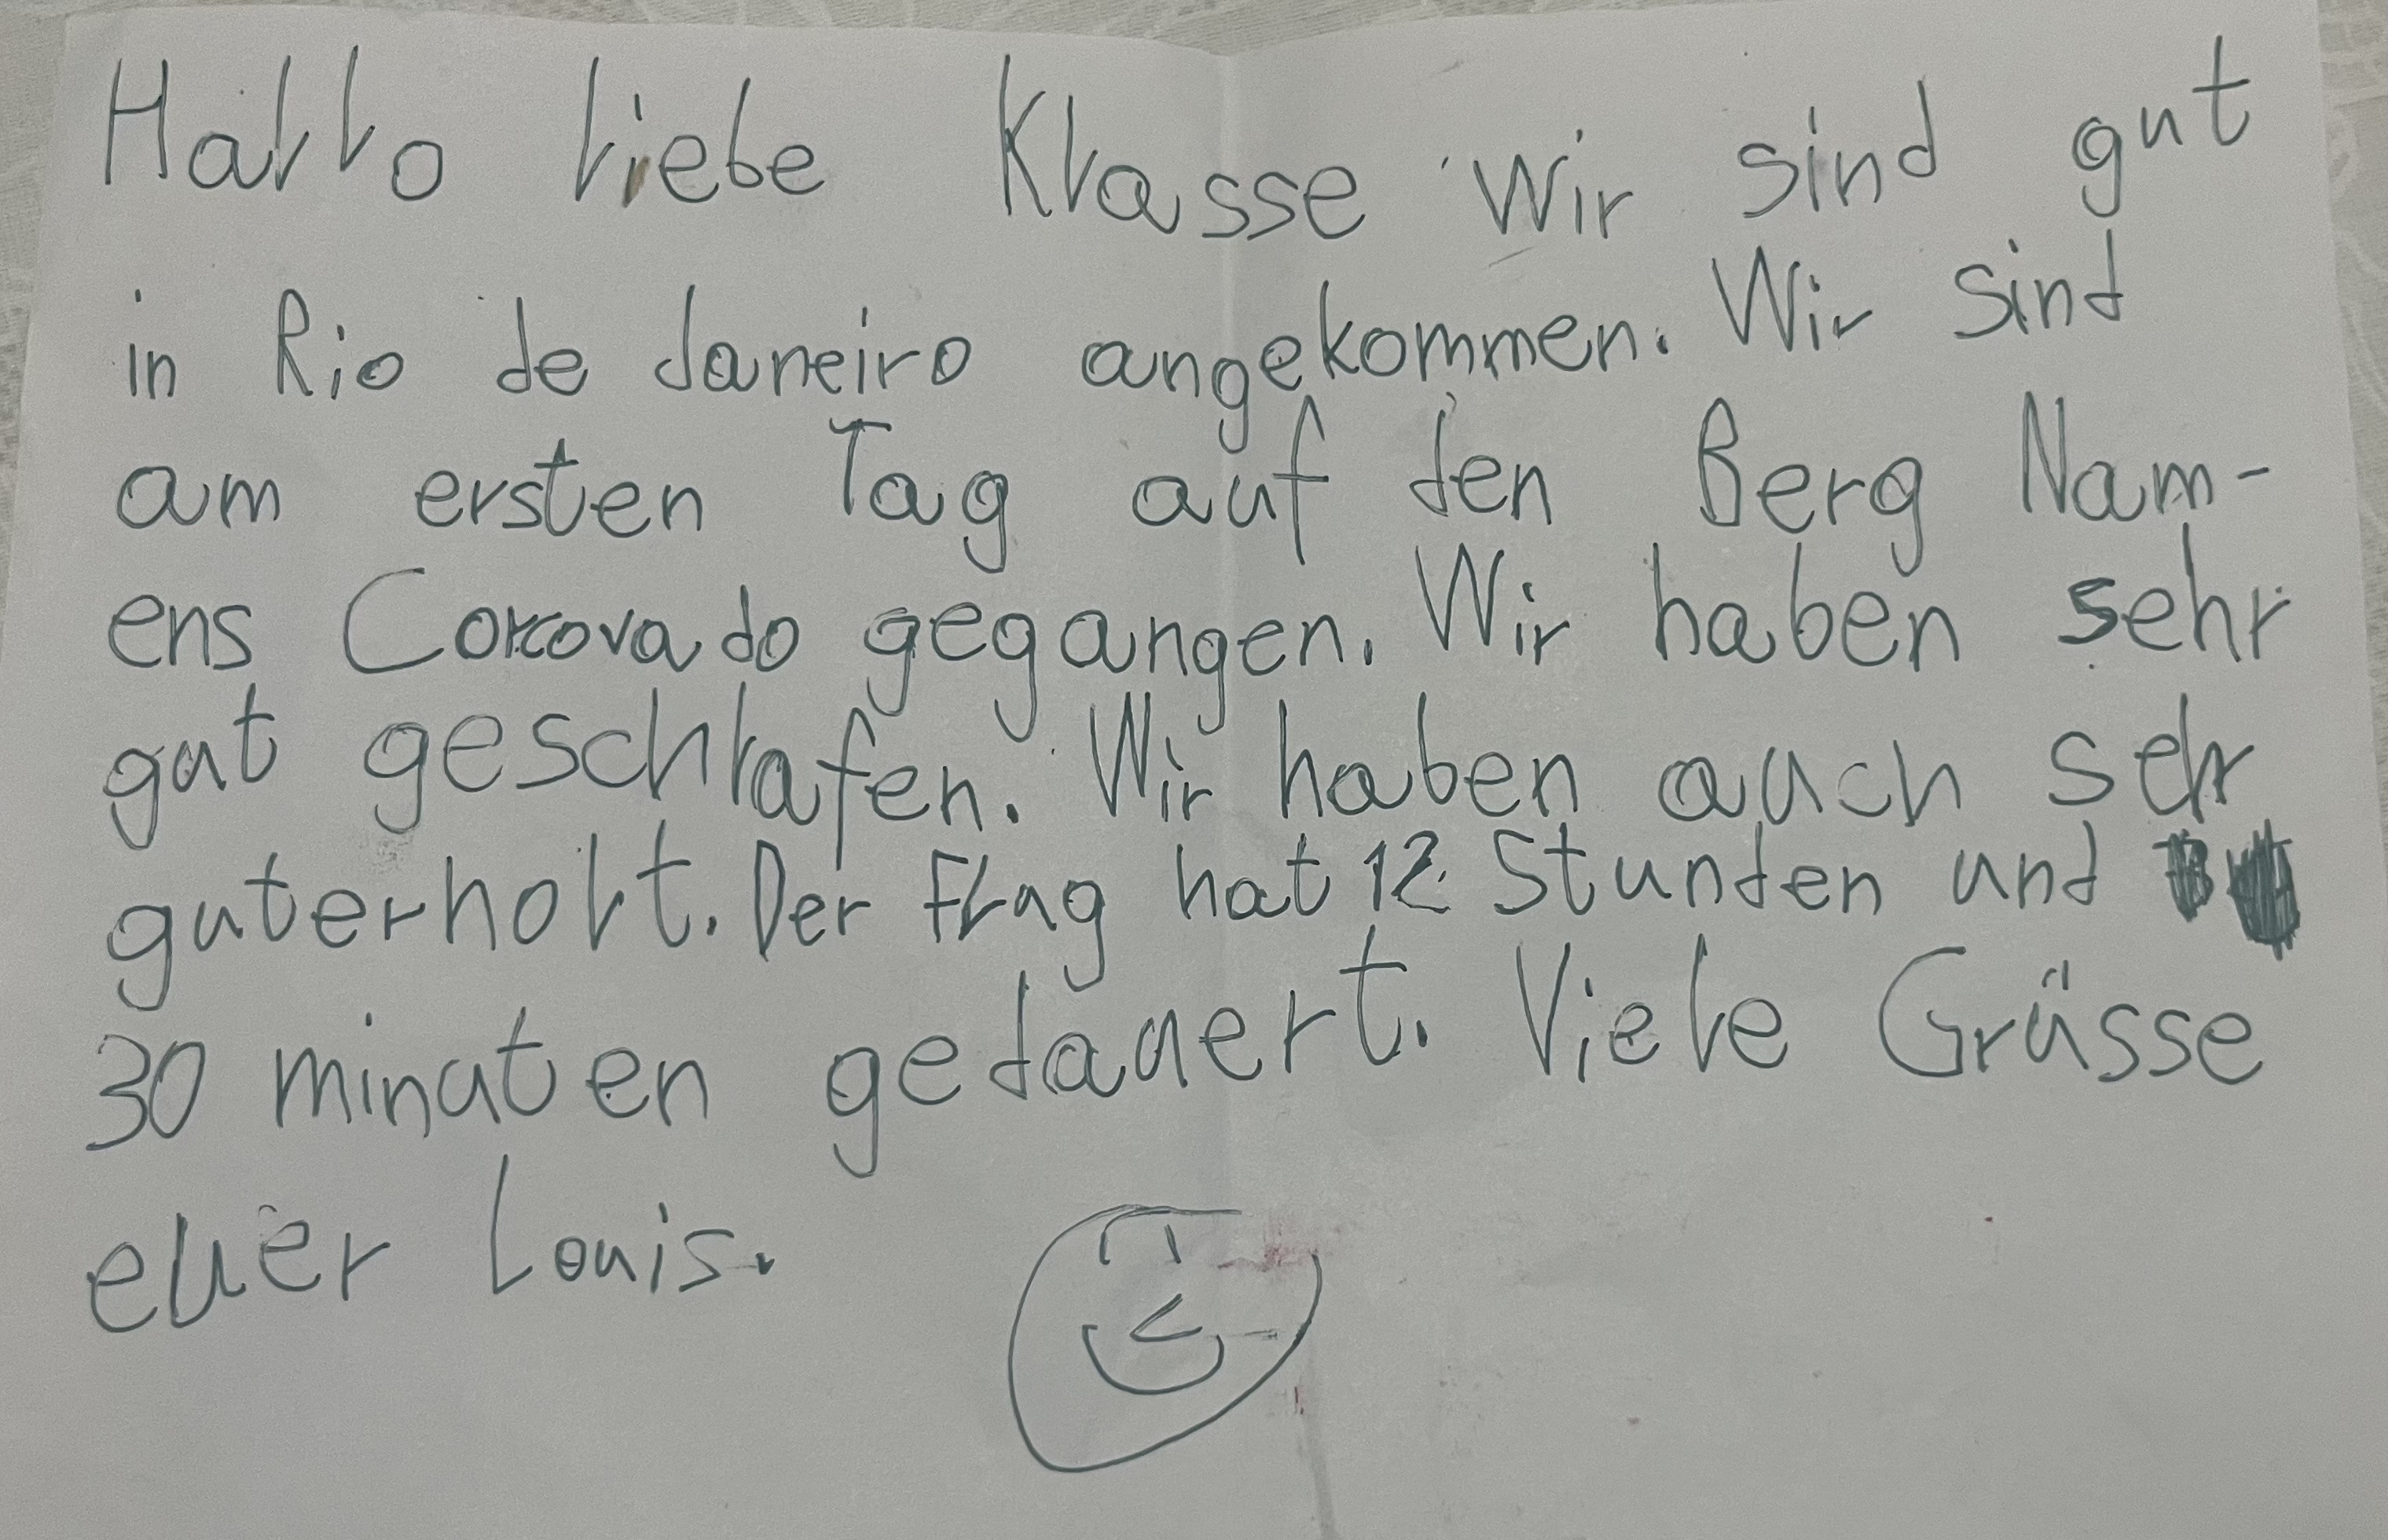 Hallo liebe Klasse wir sind gut
in Rio de Janeiro angekommen. Wir sind
am ersten Tag auf den Berg Nam-
ens Corcovado gegangen. Wir haben sehr
gut geschlafen. Wir haben auch sehr
guterholt. Der Flug hat 12 Stunden und
30 minuten gedauert. Viele Grüsse
euer Louis.